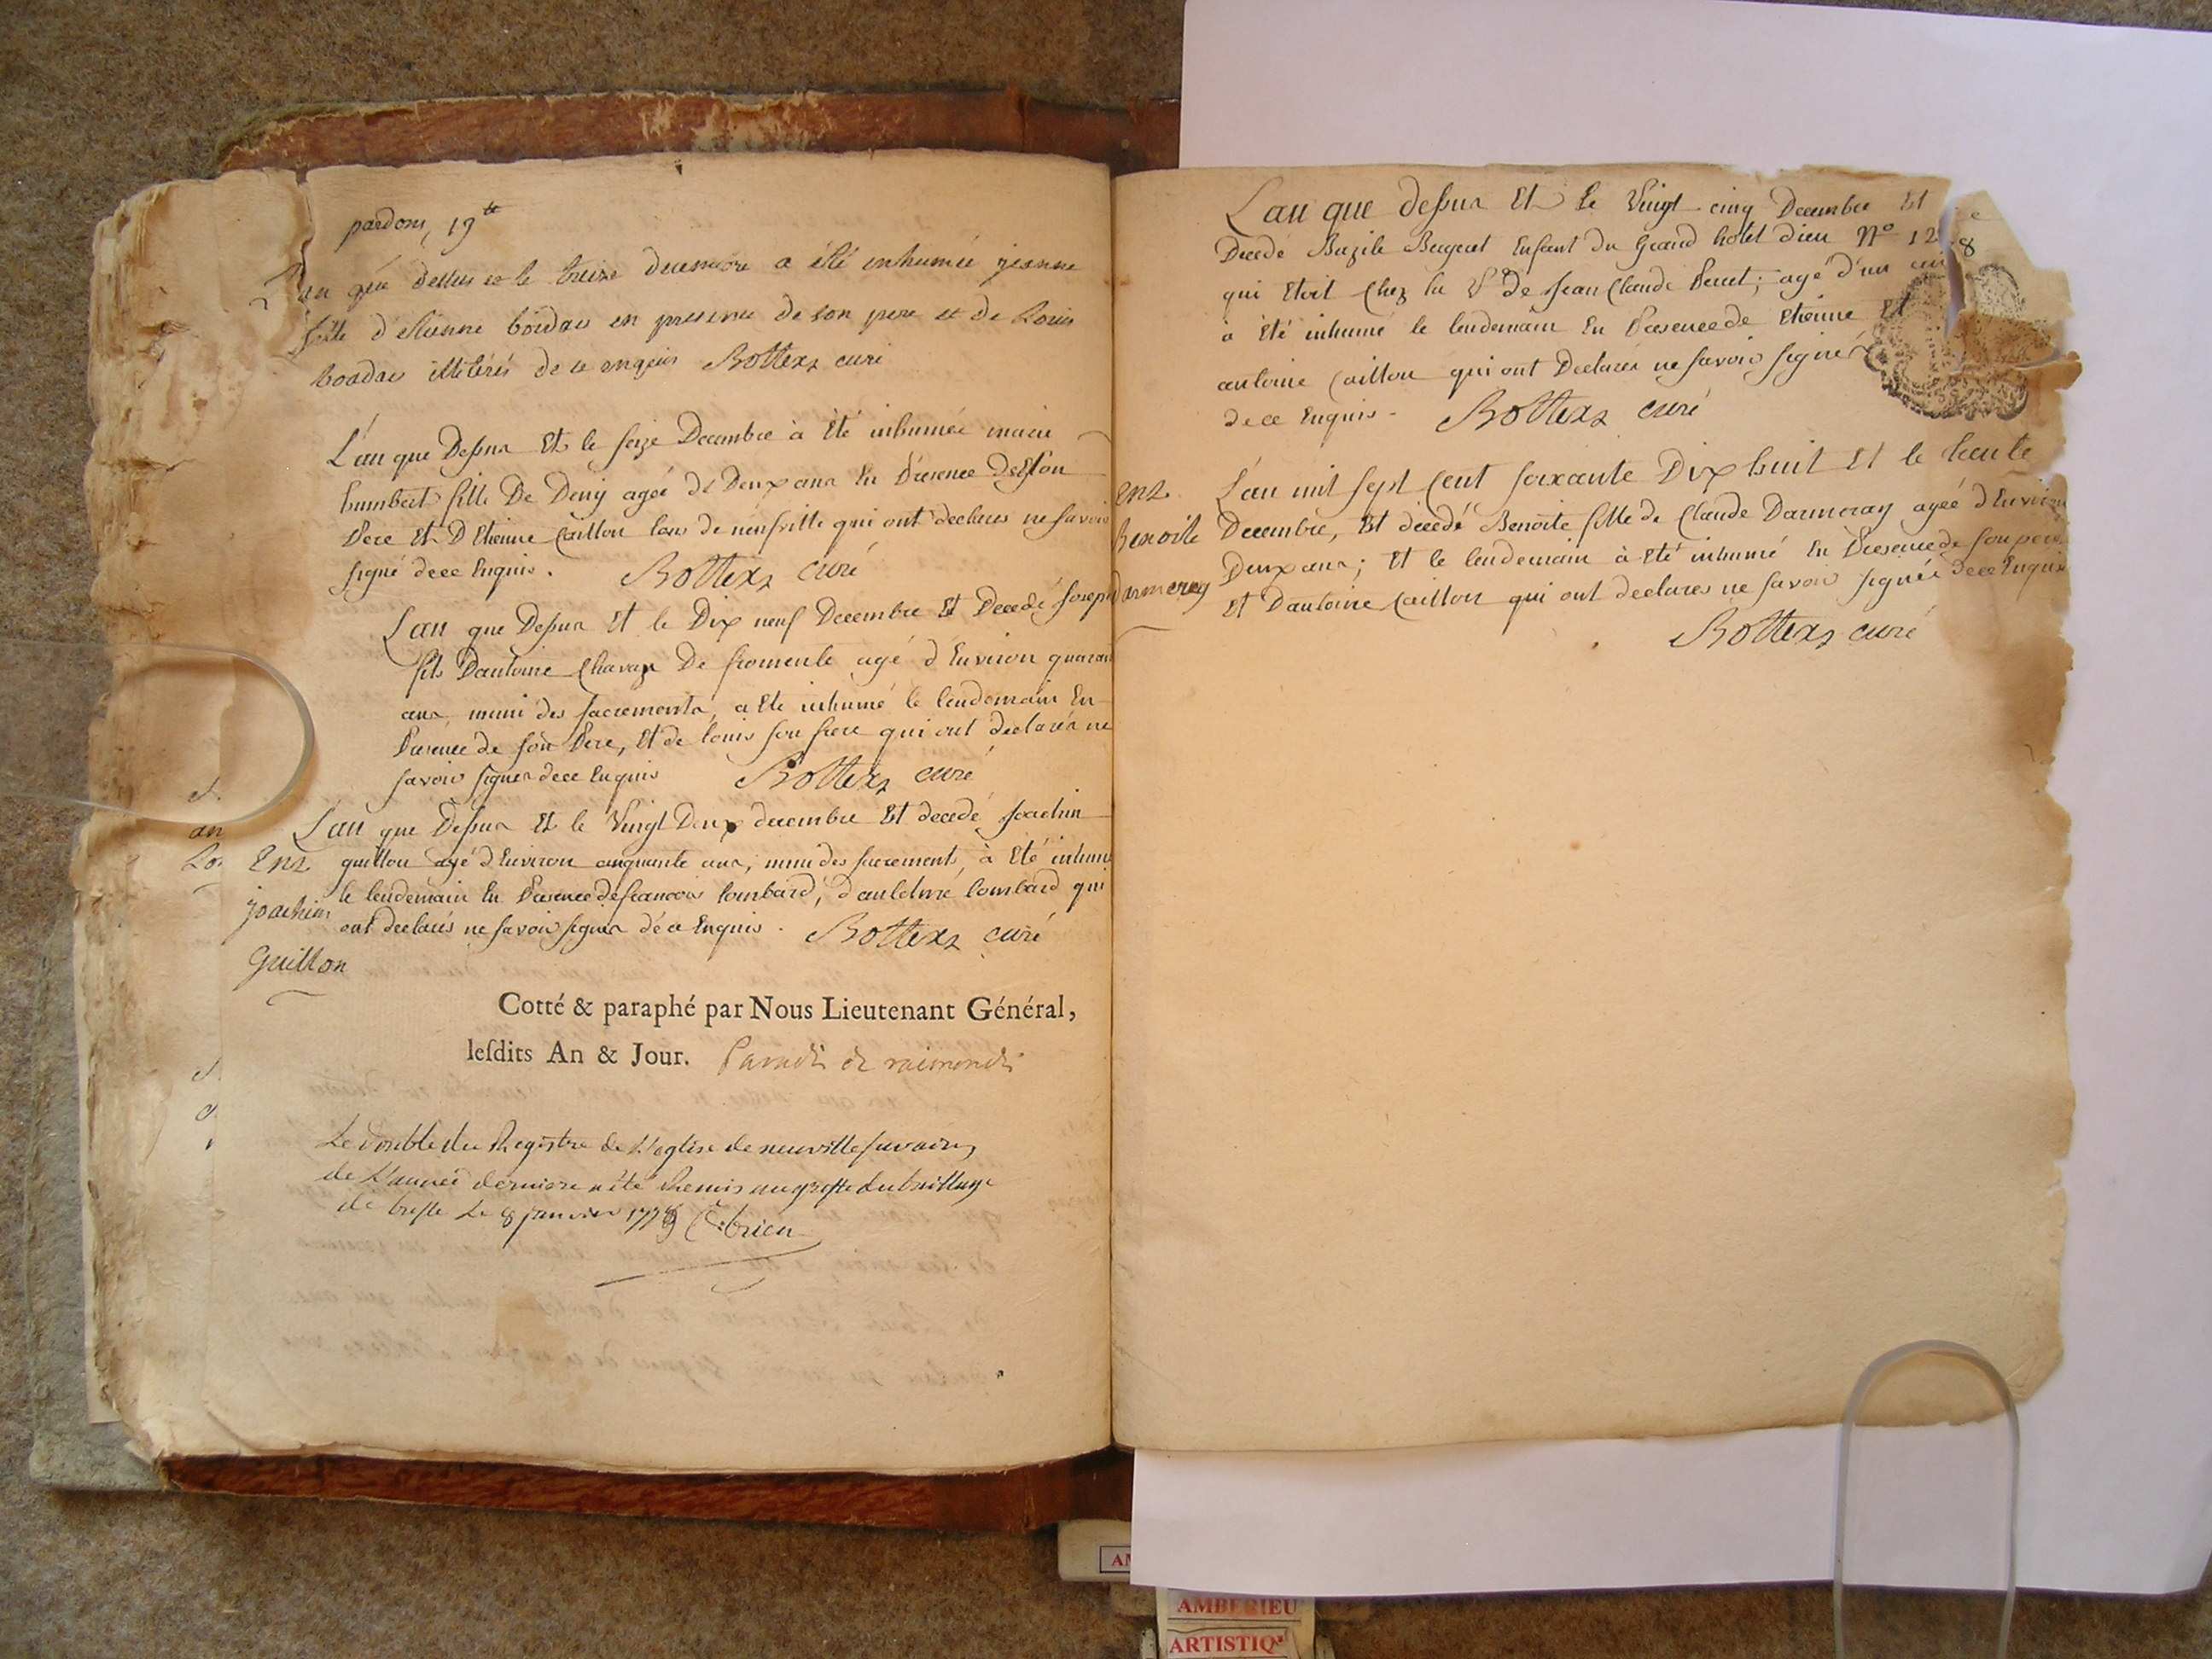 pardons, 19te
L'an que dessus et le treize decembre a été inhumée jeanne
fille d'etienne bordas en presence de son pere et de Louis
bordas illitérés de ce enquis Bottex curé
L'an que Dessus Et le seize Decembre à été inhumée marie
humbert fille De Deny ageé de Deux ans En Présence De son
Pere Et D'Etienne Caillon tous de neufville qui ont declarés ne savoir
signé de ce Enquis. Bottex curé
L'an que Dessus Et le Dix neuf Decembre Et Decedé Joseph
fils D'antoine Chavan De fromente agé d'Environ quaran
ans, muni des sacrements, a Eté inhumé le lendemain En
Présence de son Pere, Et de louis son frere qui ont declarés ne
savoir signer de ce Enquis Bottex curé
L'an que Dessus Et le Vingt Deux decembre Et decedé Joachin
guillon agé d'Environ cinquante ans, muni des sacrements à Eté inhumé
le lendemain En Présence de francois lombard, d'anthelme lombard qui
ont declarés ne savoir signer de ce Enquis. Bottex curé
Ent
joachim
Guillon
Cotté & paraphé par Nous Lieutenant Général,
lesdits An & Jour. Paradis de raimondis
Le double du Registre de L'eglise de neuville sur ains
de L'année derniere a été Remis au greffe du bailliage
de bresse Le 8 janvier 1779 C. brien
L'an que dessus Et Le Vingt cinq Decembre Et
Decedé Bazile Bergeret Enfant du Grand hotel dieu N° 12 8
qui Etoit Chez la Ve De Jean Claude Perret; agé d'un an
à Eté inhumé le lendemain En Présence de Etienne Et
antoine Caillon qui ont Declarés ne savoir signer
de ce Enquis. Bottex curé
Ent
Benoite
Darmeray
L'an mil sept Cent soixante Dix huit Et le trente
Decembre, Est décedé Benoite fille de Claude Darmeray ageé d'Environ
Deux ans; Et le lendemain à Eté inhumé En Présence de son pere
Et D'antoine Caillon qui ont declarés ne savoir signer de ce Enquis
Bottex curé
AMBERIEU
ARTISTIQ